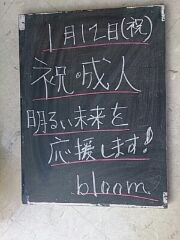 1月12日(祝)
祝・成人
明るい未来を
応援します!
bloom